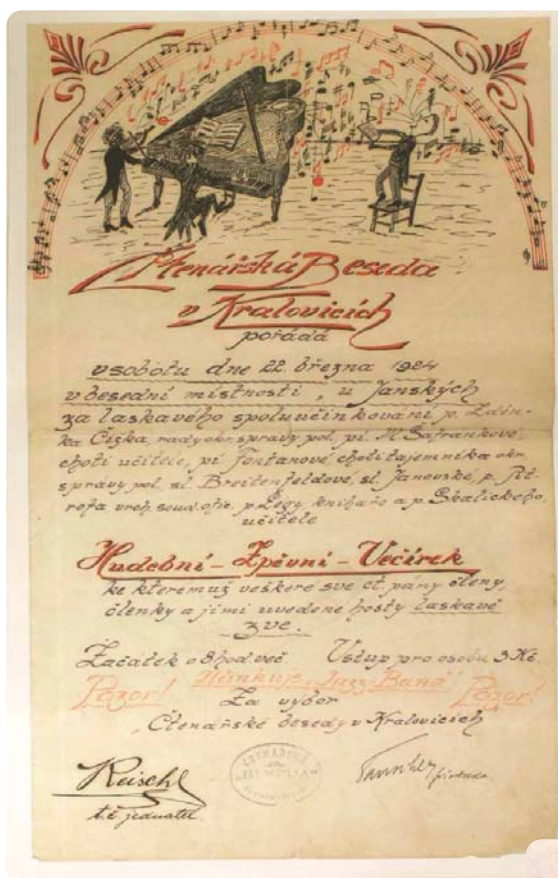 Čtenářská Beseda
v Kralovicích
pořádá
v sobotu dne 22. března 1924
v besední místnosti „u Janských
za laskavého spoluúčinkování p. Zdeň-
ka Čížka, rady okr. správy pol., pí. M. Šafránkové,
choti učitele, pí. Fontanové, choti tajemníka okr.
správy pol. sl. Breitenfeldové, sl. Janovské, p. Pit
rofa vrch. soud. ofic. p. Legy, knihaře a p. Skalického
učitele
Hudební – Zpěvní – Večírek
ke kteremuž veškere své ct. pány členy,
členky a jimi uvedené hosty laskavě
zve.
Začátek o 8 hod več. Vstup pro osobu 3 Kč.
Pozor! Účinkuje „Jazz-Band" Pozor!
Za výbor
„Čtenářské besedy v Kralovicích
Reischl
t.č. jednatel.